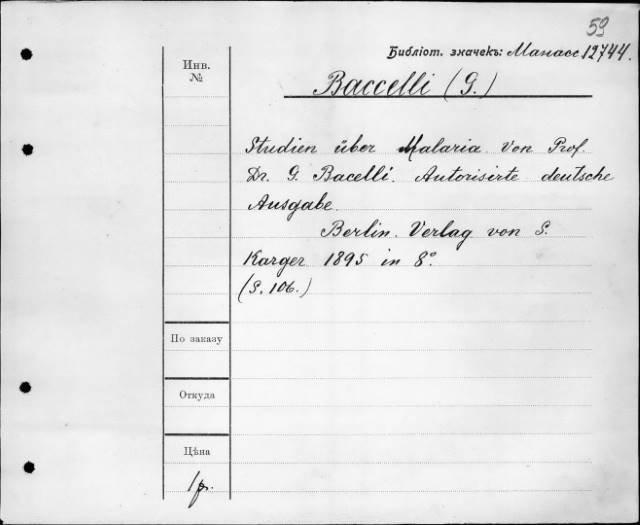 59
Библіот. значекъ: Манасс 12744.
Инв.
№
Baccelli (G.)
Studien über Malaria von Prof.
Dr. G. Bacelli. Autorisirte deutsche
Ausgabe.
Berlin. Verlag von S.
Karger 1895 in 8°.
(S. 106.)
По заказу
Откуда
Цѣна
1р.